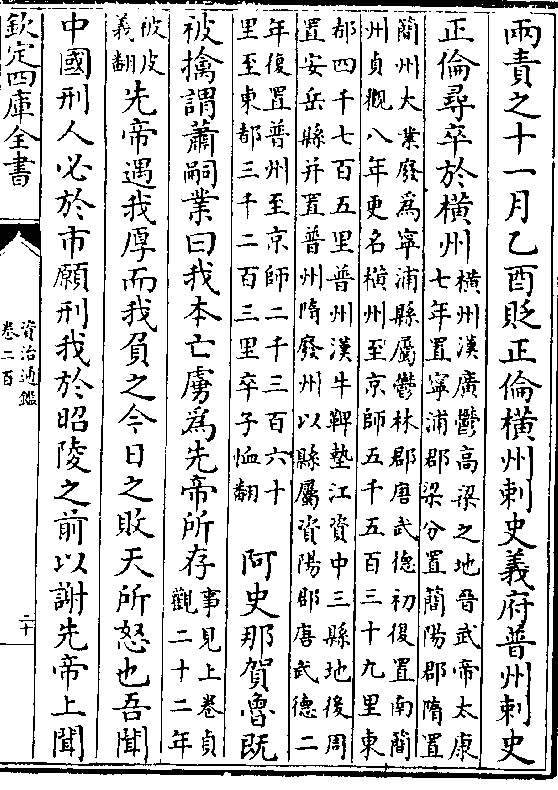 兩責之十一月乙酉貶正倫橫州刺史義府普州刺史
正倫尋卒於橫州
橫州漢廣鬱高梁之地晉武帝太康
七年置寧浦郡梁分置簡陽郡隋置
簡州大業廢爲寧浦縣屬鬱林郡唐武德初復置南簡
州貞觀八年更名橫州至京師五千五百三十九里東
都四千七百五里普州漢牛鞞墊江資中三縣地後周
置安岳縣并置普州隋廢州以縣屬資陽郡唐武德二
年復置普州至京師二千三百六十
里至東都三千二百三里卒子恤翻
阿史那賀魯既
被擒謂蕭嗣業曰我本亡虜爲先帝所存
事見上卷貞
觀二十二年
被皮
義翻
先帝遇我厚而我負之今日之敗天所怒也吾聞
中國刑人必於市願刑我於昭陵之前以謝先帝上聞
欽定四庫全書
資治通鑑
卷二百
二十